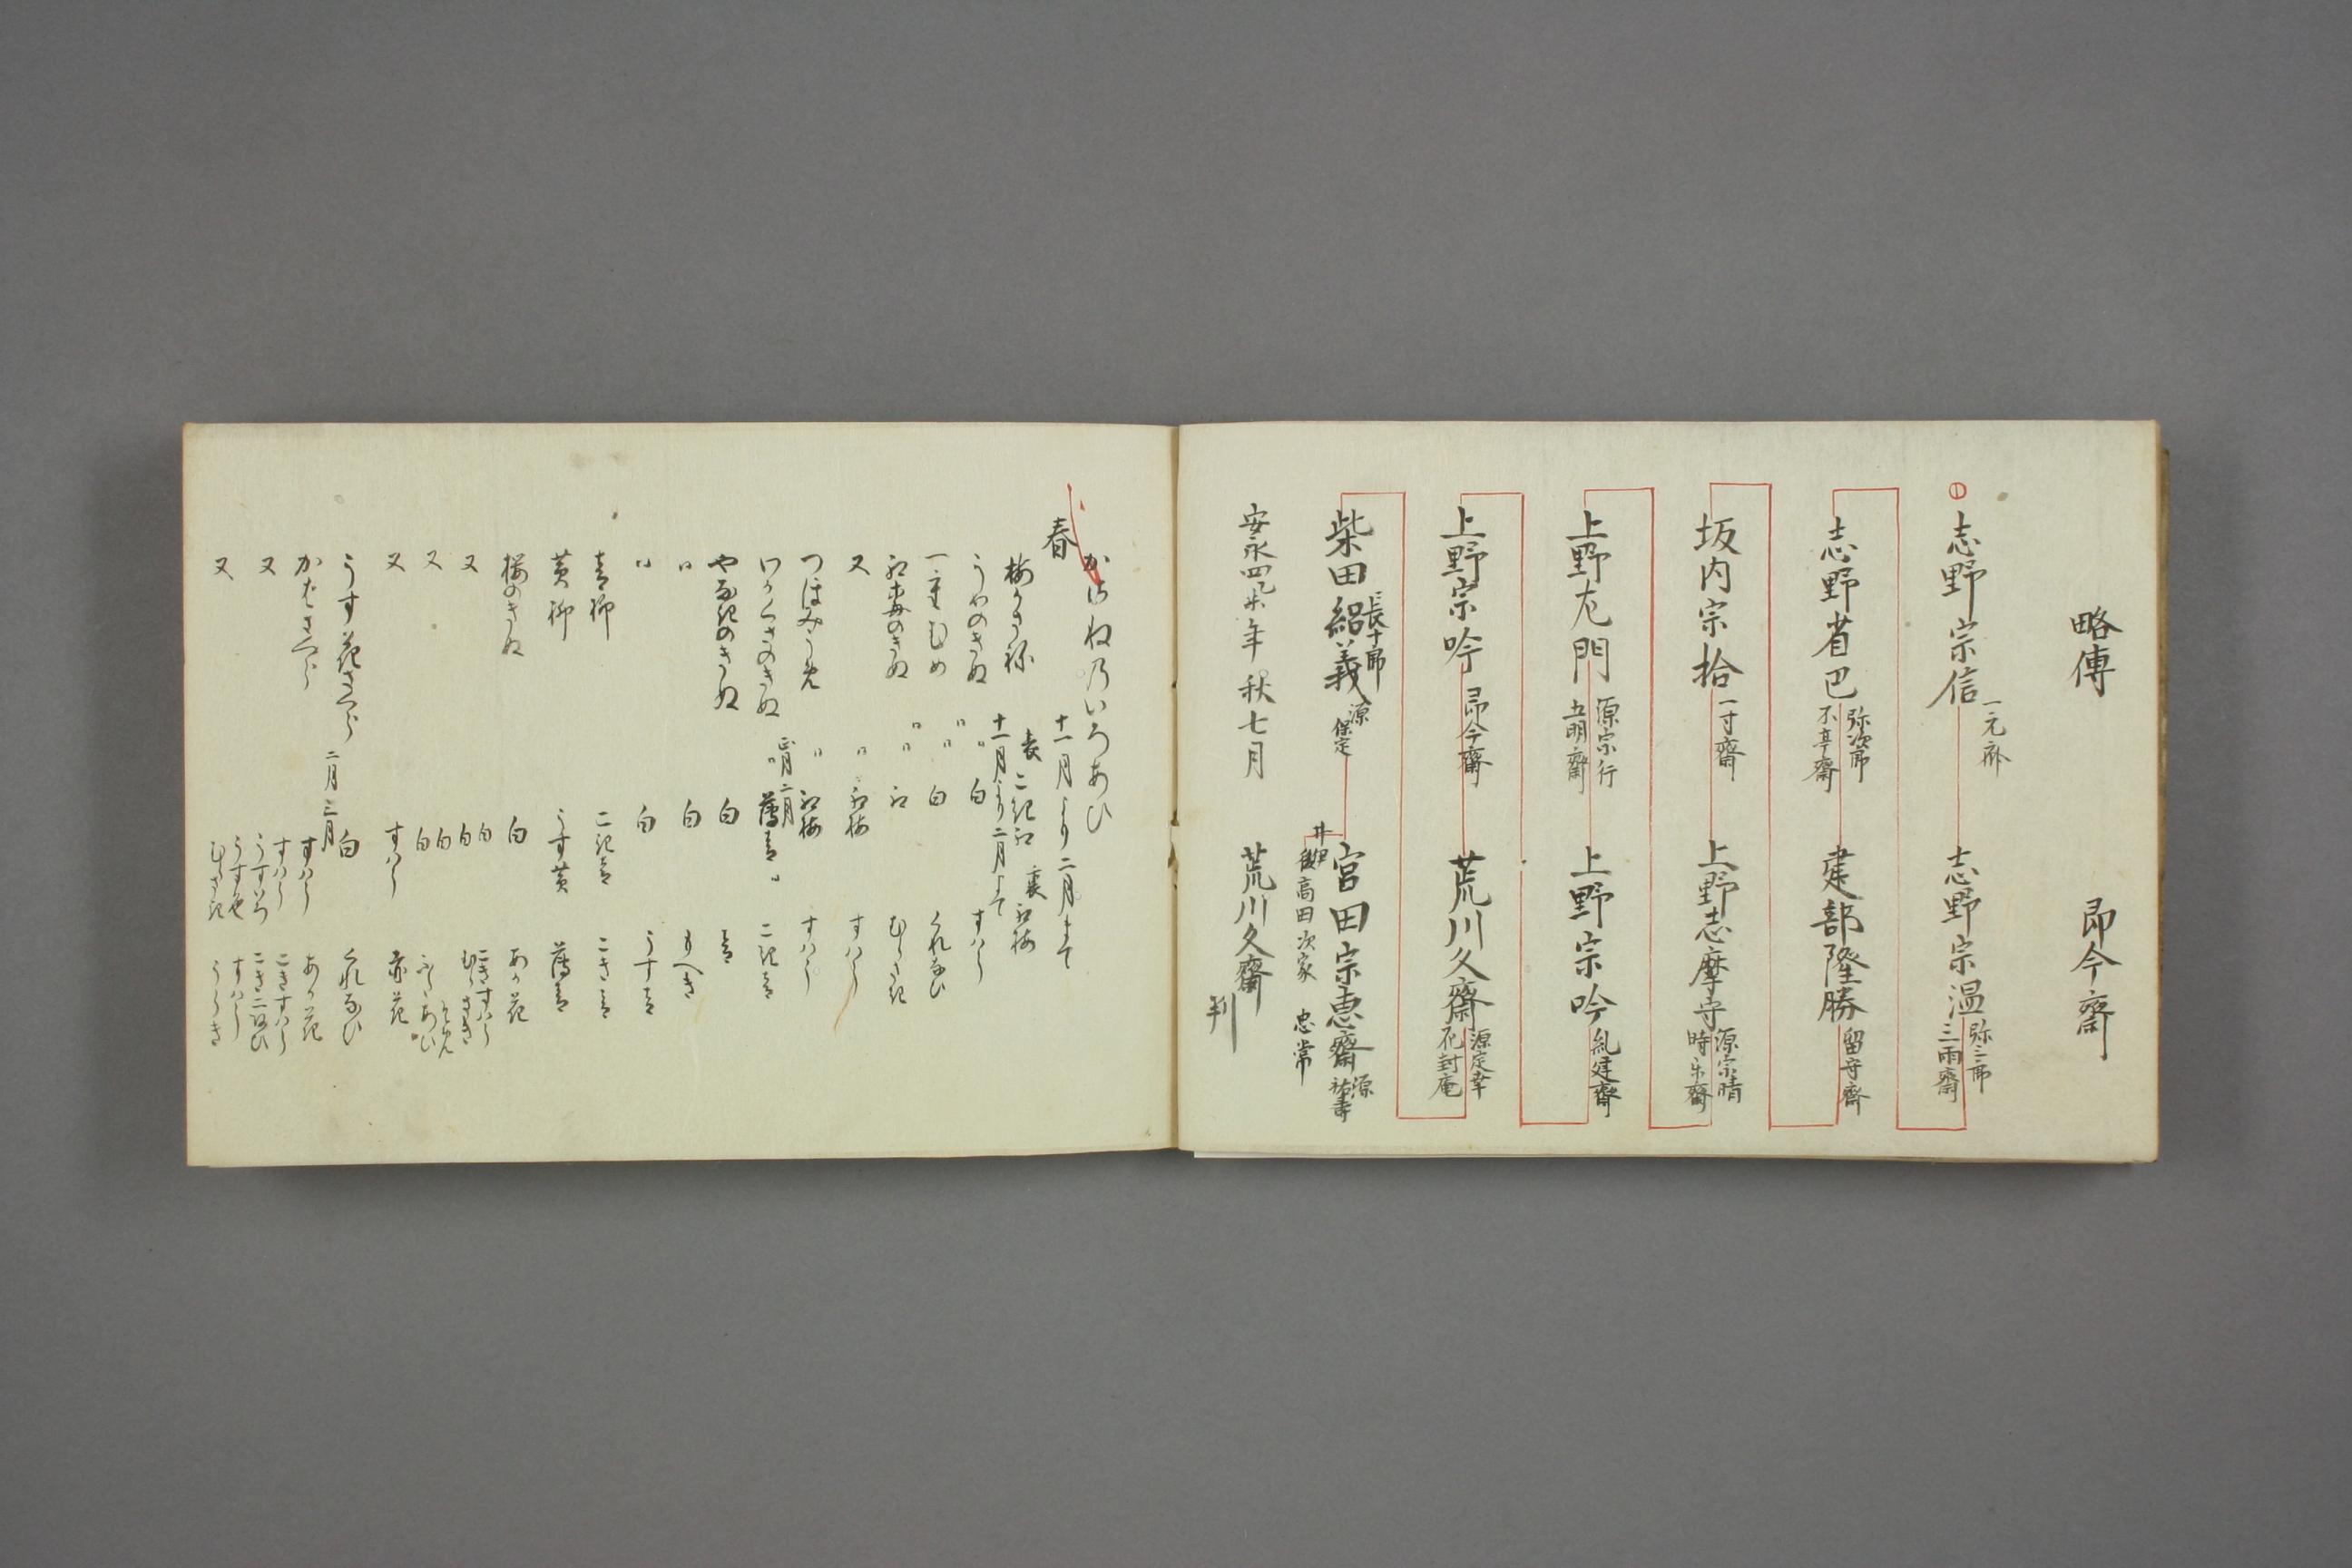 略傳　即今齋
志野宗信 一元齋
志野宗温 弥三郎 三雨齋
志野省巴 弥次郎 不寒齋
建部隆勝 留守齋
坂内宗拾 一寸齋
上野志摩守 源宗晴 時楽齋
上野左門 源宗行 五明齋
上野宗吟 乱建齋
上野宗吟 即今齋
荒川久齋 源定幸 花封庵
柴田紹義 長十郎 源保定
宮田宗恵齋 源祐壽
高田次家 忠常
安永四乙未年秋七月　荒川久齋 判
かさねのいろあひ
春　十一月より二月まて
梅かさね 表こき紅 裏紅梅
十一月より二月まて
うめのきぬ 〃 白 すはう
一重むめ 〃 白 くれなひ
紅梅のきぬ 〃 紅 むらさき
又 〃 紅梅 すはう
つほみ 〃 紅梅 すはう
わかくさのきぬ 正月二月 薄青 こき青
やなきのきぬ 白 青
〃 白 もへき
〃 白 うす青
青柳 こき青 こき
黄柳 うす黄 薄青
桜のきぬ 白 あか花
又 白 こきすはう
白 むらさき
又 白
白
又 すはう 赤花
うす花さくら 二月三月 白 くれなひ
かはさくら すはう あか花
又 すはう こきすはう
うすいろ こき二あひ
又 うす色 すはう
むらさき うらき